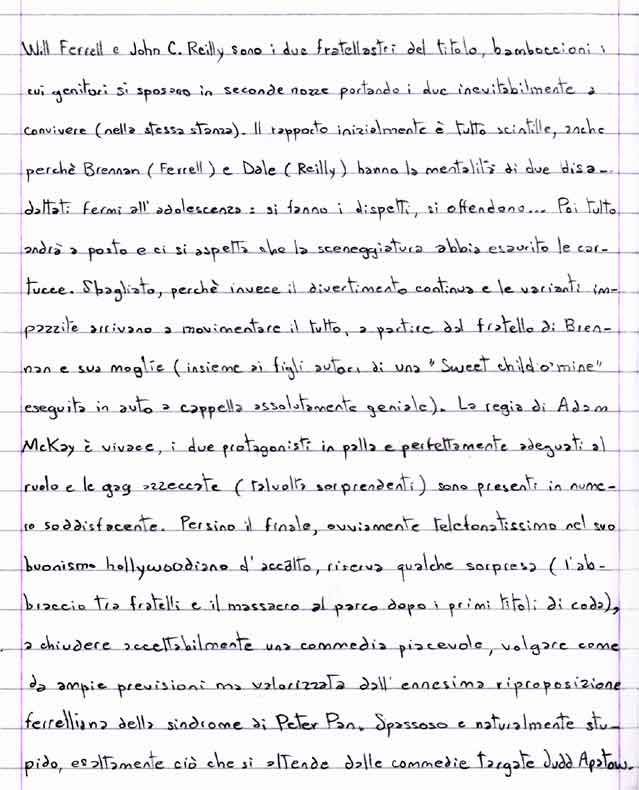 Will Ferrell e John C. Reilly sono i due fratellastri del titolo, bamboccioni i
cui genitori si sposano in seconde nozze portando i due inevitabilmente a
convivere (nella stessa stanza). Il rapporto inizialmente è tutto scintille, anche
perchè Brennan (Ferrell) e Dale (Reilly) hanno la mentalità di due disa-
dattati fermi all'adolescenza: si fanno i dispetti, si offendono... Poi tutto
andrà a posto e ci si aspetta che la sceneggiatura abbia esaurito le car-
tucce. Sbagliato, perchè invece il divertimento continua e le varianti im-
pazzite arrivano a movimentare il tutto, a partire dal fratello di Bren-
nan e sua moglie (insieme ai figli autori di una "Sweet child o'mine"
eseguita in auto a cappella assolutamente geniale). La regia di Adam
McKay è vivace, i due protagonisti in palla e perfettamente adeguati al
ruolo e le gag azzeccate (talvolta sorprendenti) sono presenti in nume-
ro soddisfacente. Persino il finale, ovviamente telefonatissimo nel suo
buonismo hollywoodiano d'accatto, riserva qualche sorpresa (l'ab-
braccio tra fratelli e il massacro al parco dopo i primi titoli di coda),
a chiudere accettabilmente una commedia piacevole, volgare come
da ampie previsioni ma valorizzata dall'ennesima riproposizione
ferrelliana della sindrome di Peter Pan. Spassoso e naturalmente stu-
pido, esattamente ciò che si attende dalle commedie targate Judd Apatow.